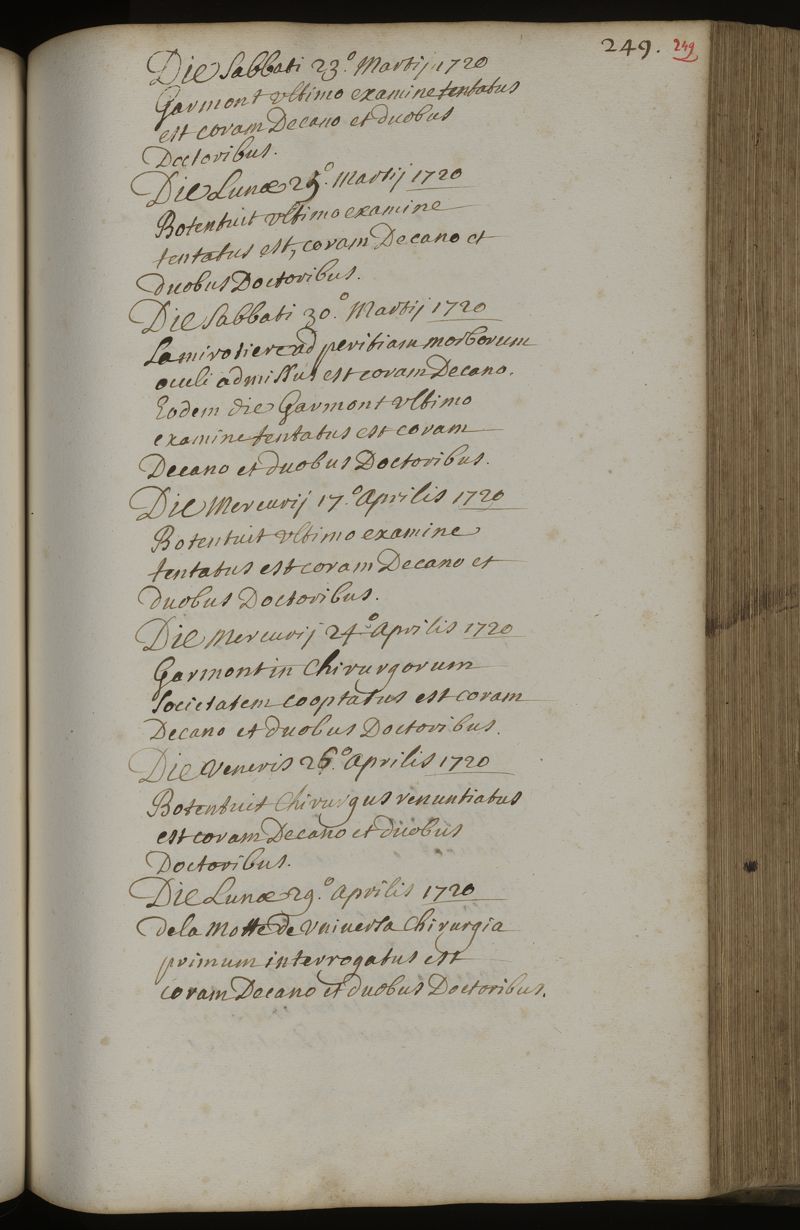 249. 249
Die Sabbati 23.º Martij 1720
Garmont vltimo examine tentatus
est coram Decano et duobus
Doctoribus.
Die Lunæ 25.º Martij 1720
Botentuit vltimo examine
tentatus est, coram Decano et
duobus Doctoribus.
Die Sabbati 30.º Martij 1720
Lamirotiere ad peritiam morborum
oculi admissus est coram Decano.
Eodem die Garmont vltimo
examine tentatus est coram
Decano et duobus Doctoribus.
Die Mercurij 17.º Aprilis 1720
Botentuit vltimo examine
tentatus est coram Decano et
duobus Doctoribus.
Die Mercurij 24.º Aprilis 1720
Garmont in Chirurgorum
Societatem cooptatus est coram
Decano et duobus Doctoribus.
Die Veneris 26.º Aprilis 1720
Botentuit Chirurgus renuntiatus
est coram Decano et duobus
Doctoribus.
Die Lunæ 29.º Aprilis 1720
de la Motte De Vniuersa Chirurgia
primum interrogatus est
coram Decano et duobus Doctoribus.